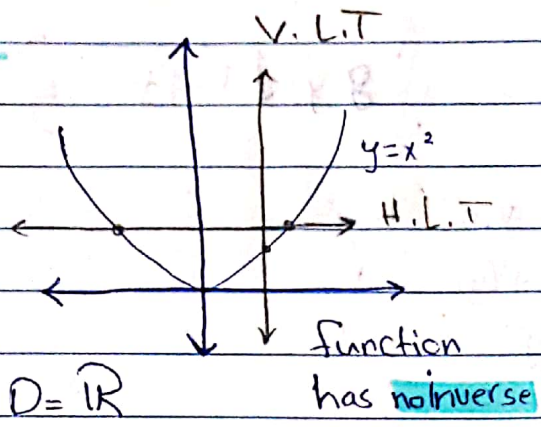 V. L. T
y=x²
H. L. T
function
D= ℝ
has no inverse